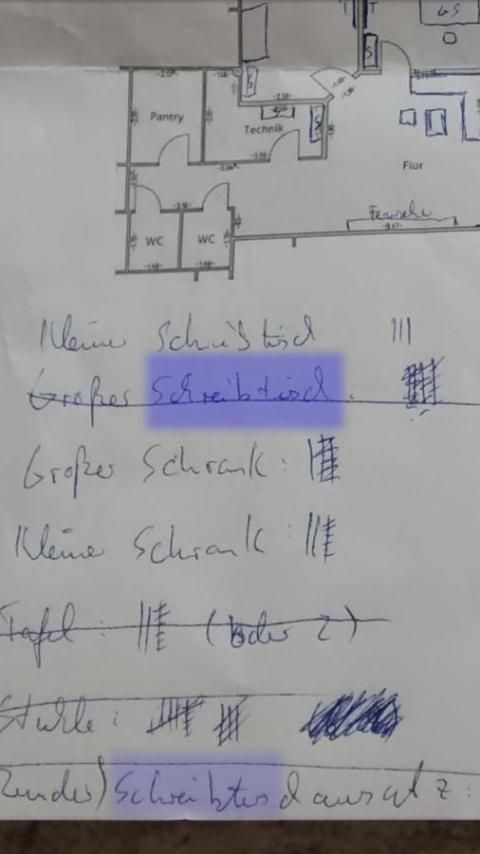 GS
S
Pantry
Technik
Flur
WC
WC
Kleine Schreibtisch |||
Großes Schreibtisch:
Großer Schrank:
Kleine Schrank:
Tafel: (oder 2)
Stühle:
Runder) Schreibtischaufsatz: